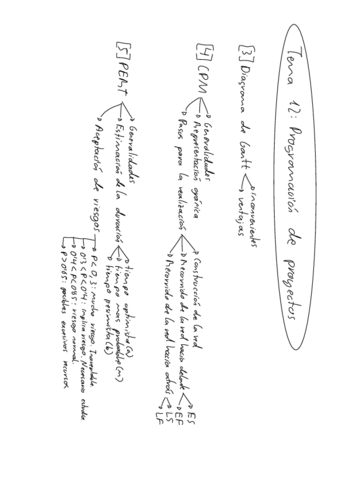 Tema 12: Programación de proyectos
[3] Diagrama de Gantt
inconvenientes
ventajas
[4] CPM
Generalidades
Representación gráfica
Pasos para la realización
Construcción de la red
Recorrido de la red hacia delante
ES
EF
Recorrido de la red hacia atrás
LS
LF
[5] PERT
Generalidades
Estimación de la duración
tiempo optimista (a)
tiempo mas probable (m)
tiempo pesimista (b)
Aceptación de riesgos
P<0,3: Mucho riesgo. Inaceptable
0'3<P<0'4: Implica riesgo. Necesario estudio
0'4<P<0'65: riesgo normal.
P>0'65: posibles excesivos recursos.